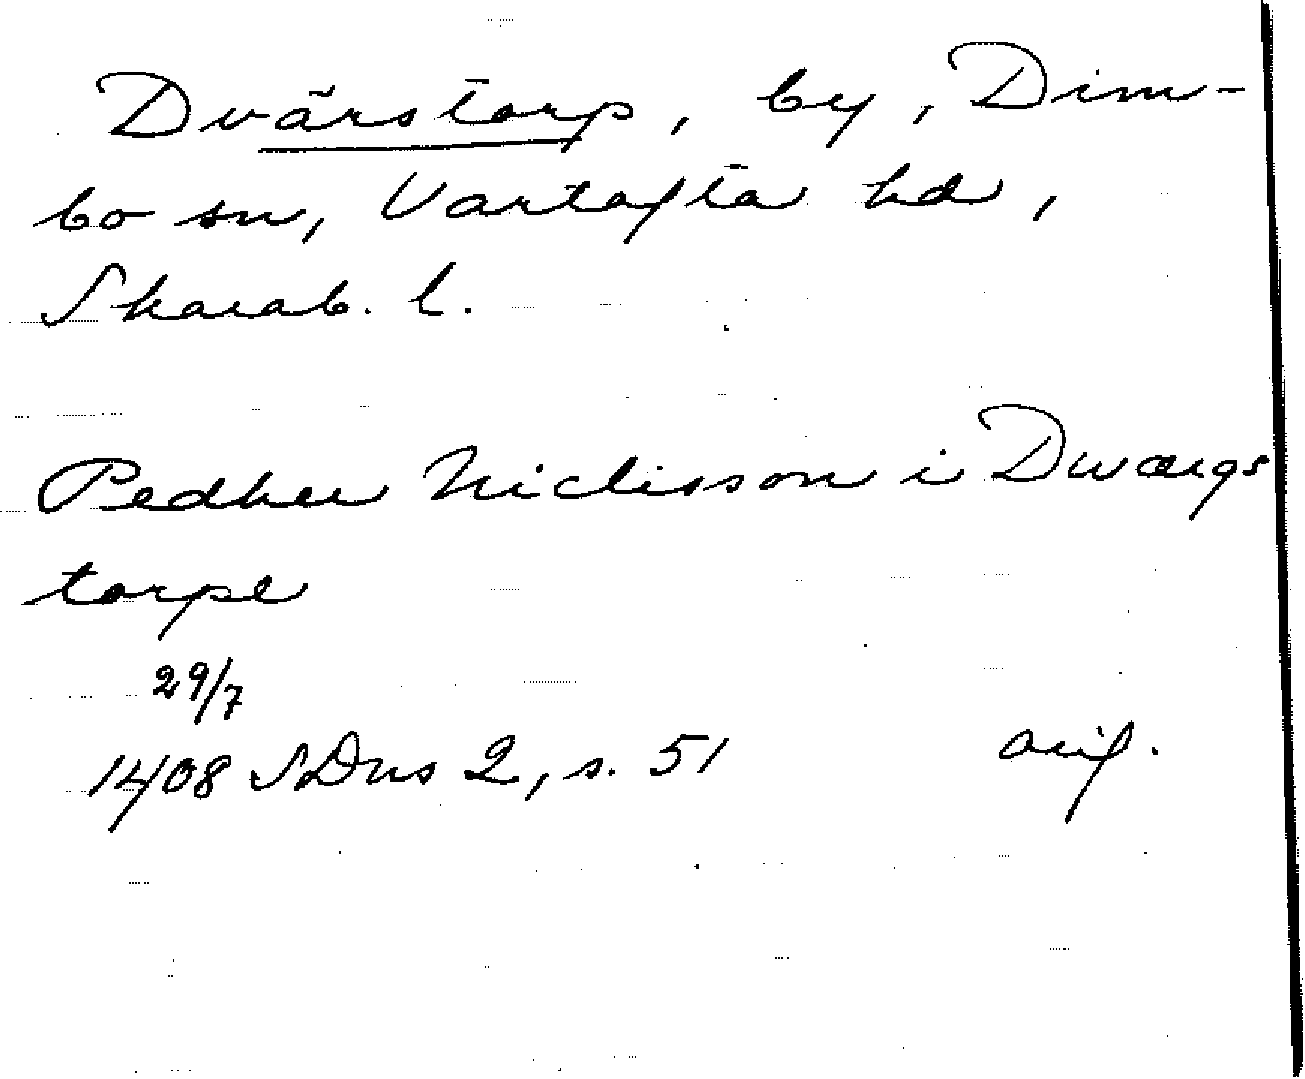 Dvärstorp, by, Dim-
bo sn, Vartofta hd,
Skarab. l.
Pedher Niclisson i Dwærgs
torpe
29/7
1408 SDns 2, s. 51 orig.